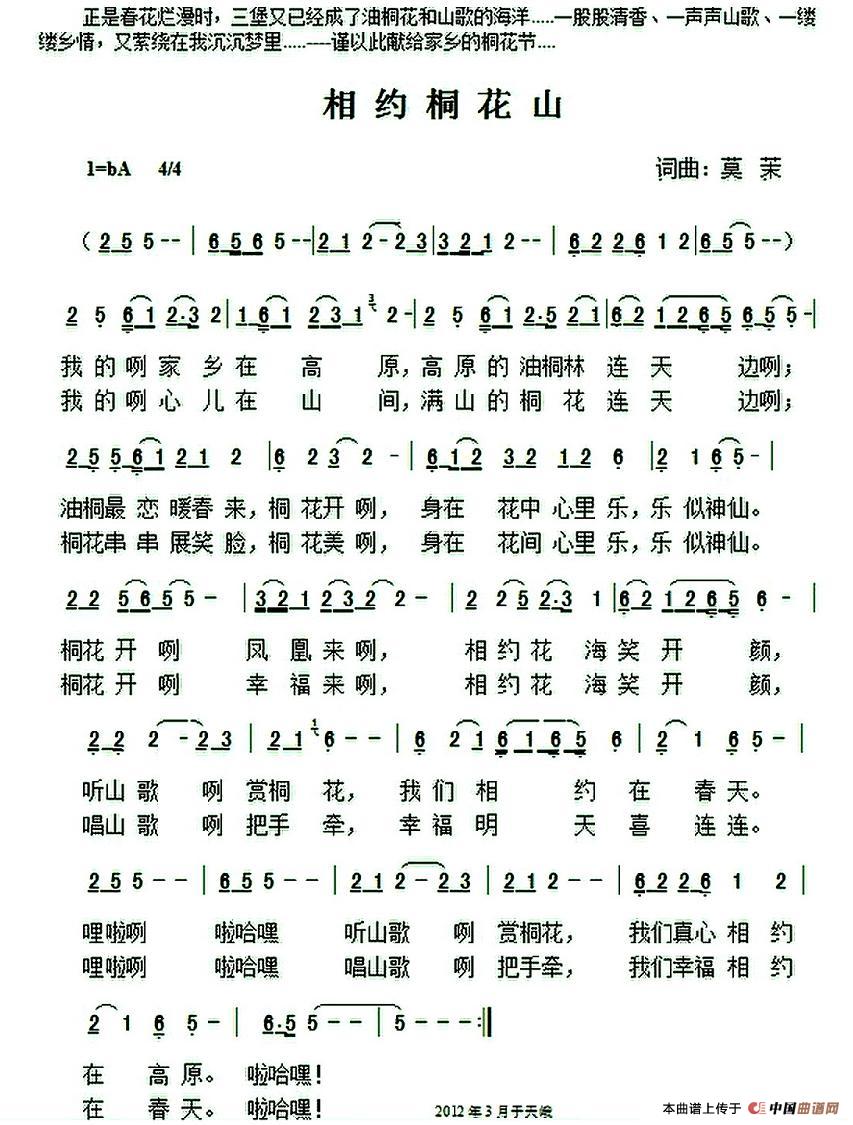 正是春花烂漫时，三堡又已经成了油桐花和山歌的海洋.....一股股清香、一声声山歌、一缕
缕乡情，又萦绕在我沉沉梦里.....----谨以此献给家乡的桐花节....
相约桐花山
1=bA 4/4 词曲：莫茉
（2 5 5 - - | 6 5 6 5 - - | 2 1 2 - 2 3 | 3 2 1 2 - - | 6 2 2 6 1 2 | 6 5 5 - - ）
2 5 6 1 2·3 2 | 1 6 1 2 3 1 3 2 - | 2 5 6 1 2·5 2 1 | 6 2 1 2 6 5 6 5 - |
我的咧家乡在高原，高原的油桐林连天边咧；
我的咧心儿在山间，满山的桐花连天边咧；
2 5 5 6 1 2 1 2 | 6 2 3 2 - | 6 1 2 3 2 1 2 6 | 2 1 6 5 - |
油桐最恋暖春来，桐花开咧，身在花中心里乐，乐似神仙。
桐花串串展笑脸，桐花美咧，身在花间心里乐，乐似神仙。
2 2 5 6 5 5 - | 3 2 1 2 3 2 2 - | 2 2 5 2·3 1 | 6 2 1 2 6 5 6 - |
桐花开咧凤凰来咧，相约花海笑开颜，
桐花开咧幸福来咧，相约花海笑开颜，
2 2 2 - 2 3 | 2 1 1 6 - - | 6 2 1 6 1 6 5 6 | 2 1 6 5 - |
听山歌咧赏桐花，我们相约在春天。
唱山歌咧把手牵，幸福明天喜连连。
2 5 5 - - | 6 5 5 - - | 2 1 2 - 2 3 | 2 1 2 - - | 6 2 2 6 1 2 |
哩啦咧啦哈嘿听山歌咧赏桐花，我们真心相约
哩啦咧啦哈嘿唱山歌咧把手牵，我们幸福相约
2 1 6 5 - | 6·5 5 - - | 5 - - - :||
在高原。啦哈嘿！
在春天。啦哈嘿！
2012年3月于天峨
本曲谱上传于 中国曲谱网